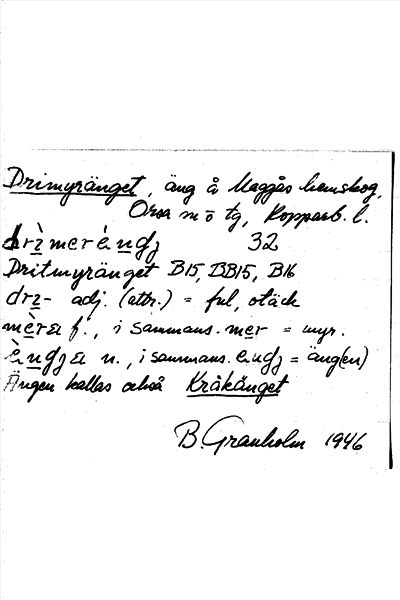 Drimyränget, äng å Maggås hemskog,
Orsa sn o tg, Kopparb. l.
drì̱merèṉdʒ 32
Dritmyränget B15, BB15, B16
drı̱- adj. (attr.) = ful, otäck
mèra f., i sammans. mer = myr.
f., i sammans. = äng(en)
Ängen kallas också Kråkänget
B. Granholm 1946